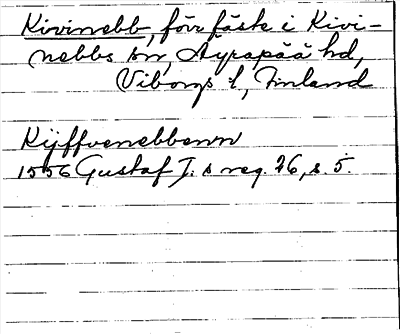 Kivinebb, förr fäste i Kivi-
nebbs sn, Äyräpää hd,
Viborgs l, Finland
Kijffvenebbenn
1556 Gustaf I. s reg. 26, s. 5.